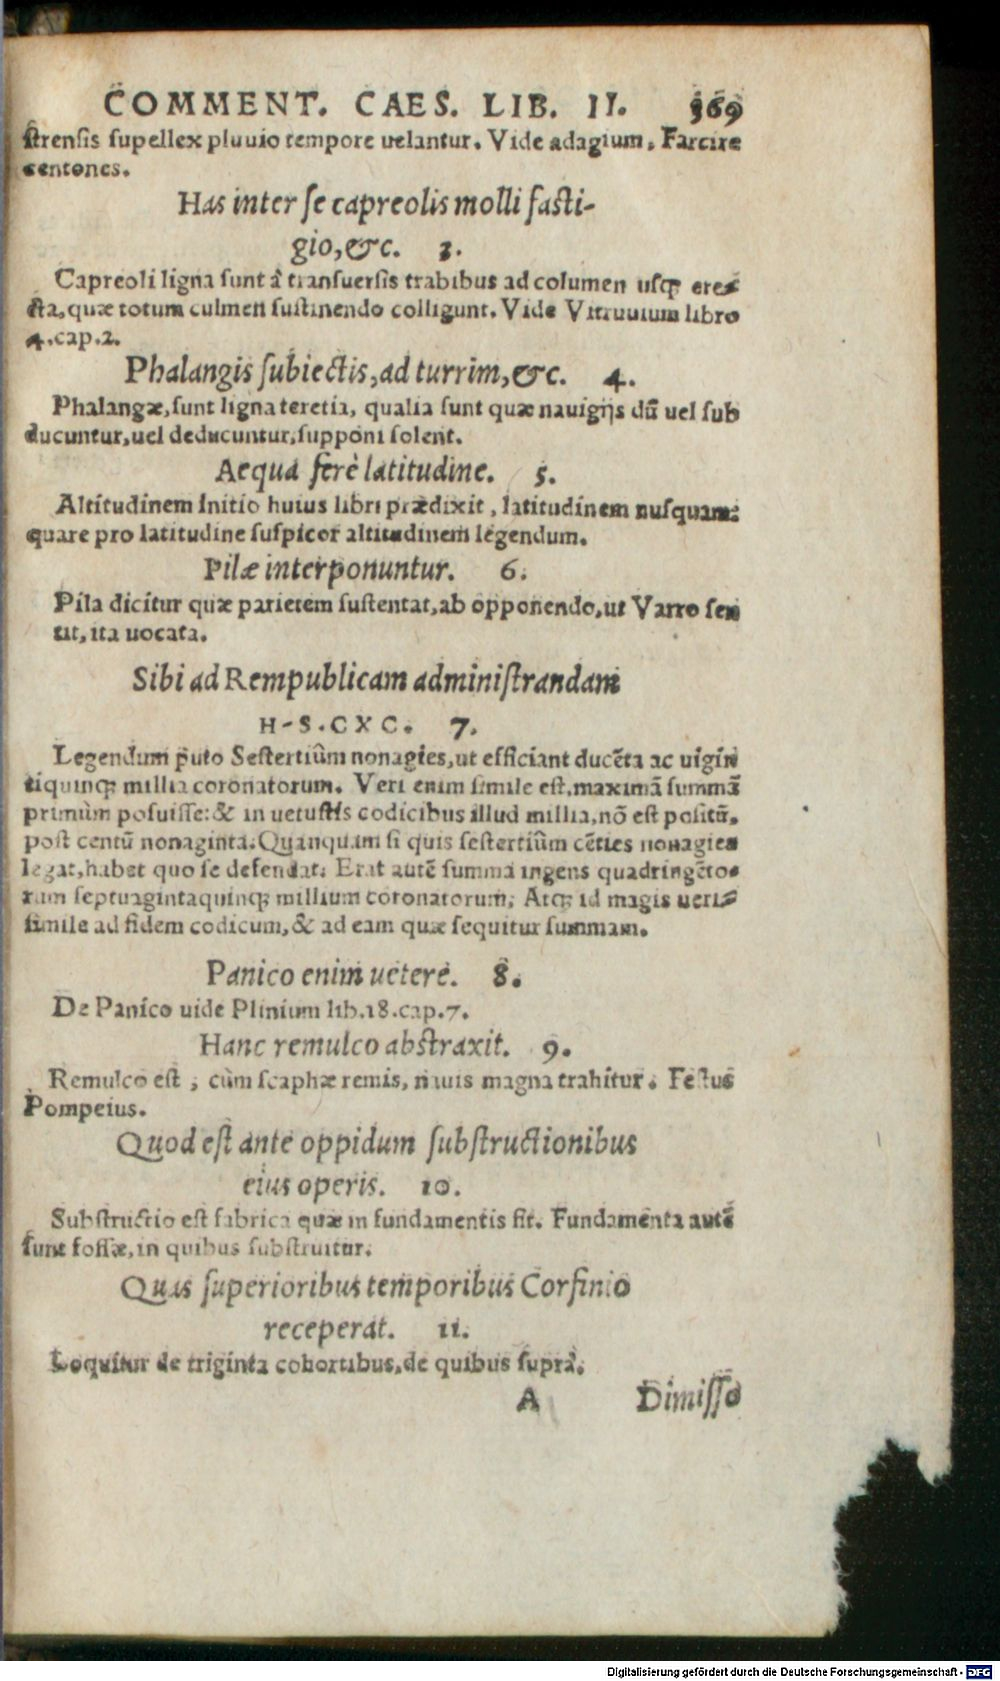 COMMENT. CAES. LIB. II. 369
ſtrensis ſupellex pluuio tempore uelantur. Vide adagium, Farcire
centones.
Has inter ſe capreolis molli faſti-
gio, &c. 3.
Capreoli ligna ſunt â tranſuerſis trabibus ad columen uſqꝫ ere⸗
cta, quæ totum culmen ſuſtinendo colligunt. Vide Vitruuium libro
4.cap.2.
Phalangis ſubiectis, ad turrim, &c. 4.
Phalangæ, ſunt ligna teretia, qualia ſunt quæ nauigijs dũ uel ſub
ducuntur, uel deducuntur, ſupponi ſolent.
Aequa ferè latitudine. 5.
Altitudinem initio huius libri prædixit, latitudinem nuſquam:
quare pro latitudine ſuſpicor altitudinem legendum.
Pilæ interponuntur. 6.
Pila dicitur quæ parietem ſuſtentat, ab opponendo, ut Varro ſen
tit, ita uocata.
Sibi ad Rempublicam adminiſtrandam
H-S.CXC. 7.
Legendum puto Seſtertiûm nonagies, ut efficiant ducẽta ac uigin
tiquinqꝫ millia coronatorum. Veri enim ſimile eſt, maximã ſummã
primùm poſuiſſe: & in uetuſtis codicibus illud millia, nõ eſt poſitũ,
poſt centũ nonaginta. Quanquam ſi quis ſeſtertiûm cẽties nonagies
legat, habet quo ſe defendat. Erat autẽ ſumma ingens quadringẽto⸗
rum ſeptuagintaquinqꝫ millium coronatorum, Atqꝫ id magis ueri⸗
ſimile ad fidem codicum, & ad eam quæ ſequitur ſummam.
Panico enim uetere. 8.
De Panico uide Plinium lib.18.cap.7.
Hanc remulco abſtraxit. 9.
Remulco eſt, cùm ſcaphæ remis, nauis magna trahitur. Feſtus
Pompeius.
Quod eſt ante oppidum ſubſtructionibus
eius operis. 10.
Subſtructio eſt fabrica quæ in fundamentis fit. Fundamenta autẽ
ſunt foſſæ, in quibus ſubſtruitur.
Quas ſuperioribus temporibus Corfinio
receperat. 11.
Loquitur de triginta cohortibus, de quibus ſuprà.
A Dimiſſo
Digitalisierung gefördert durch die Deutsche Forschungsgemeinschaft - DFG